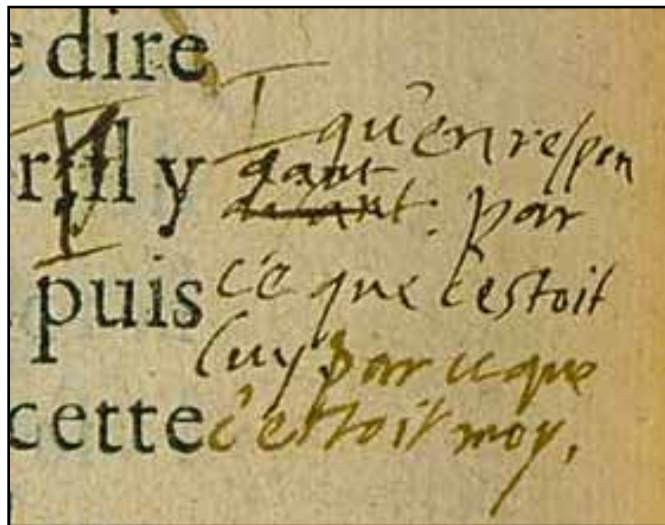 e dire
il y
puis
cette
qu'en respon
dant
: par
ce que c'estoit
luy: par ce que
c'estoit moy.